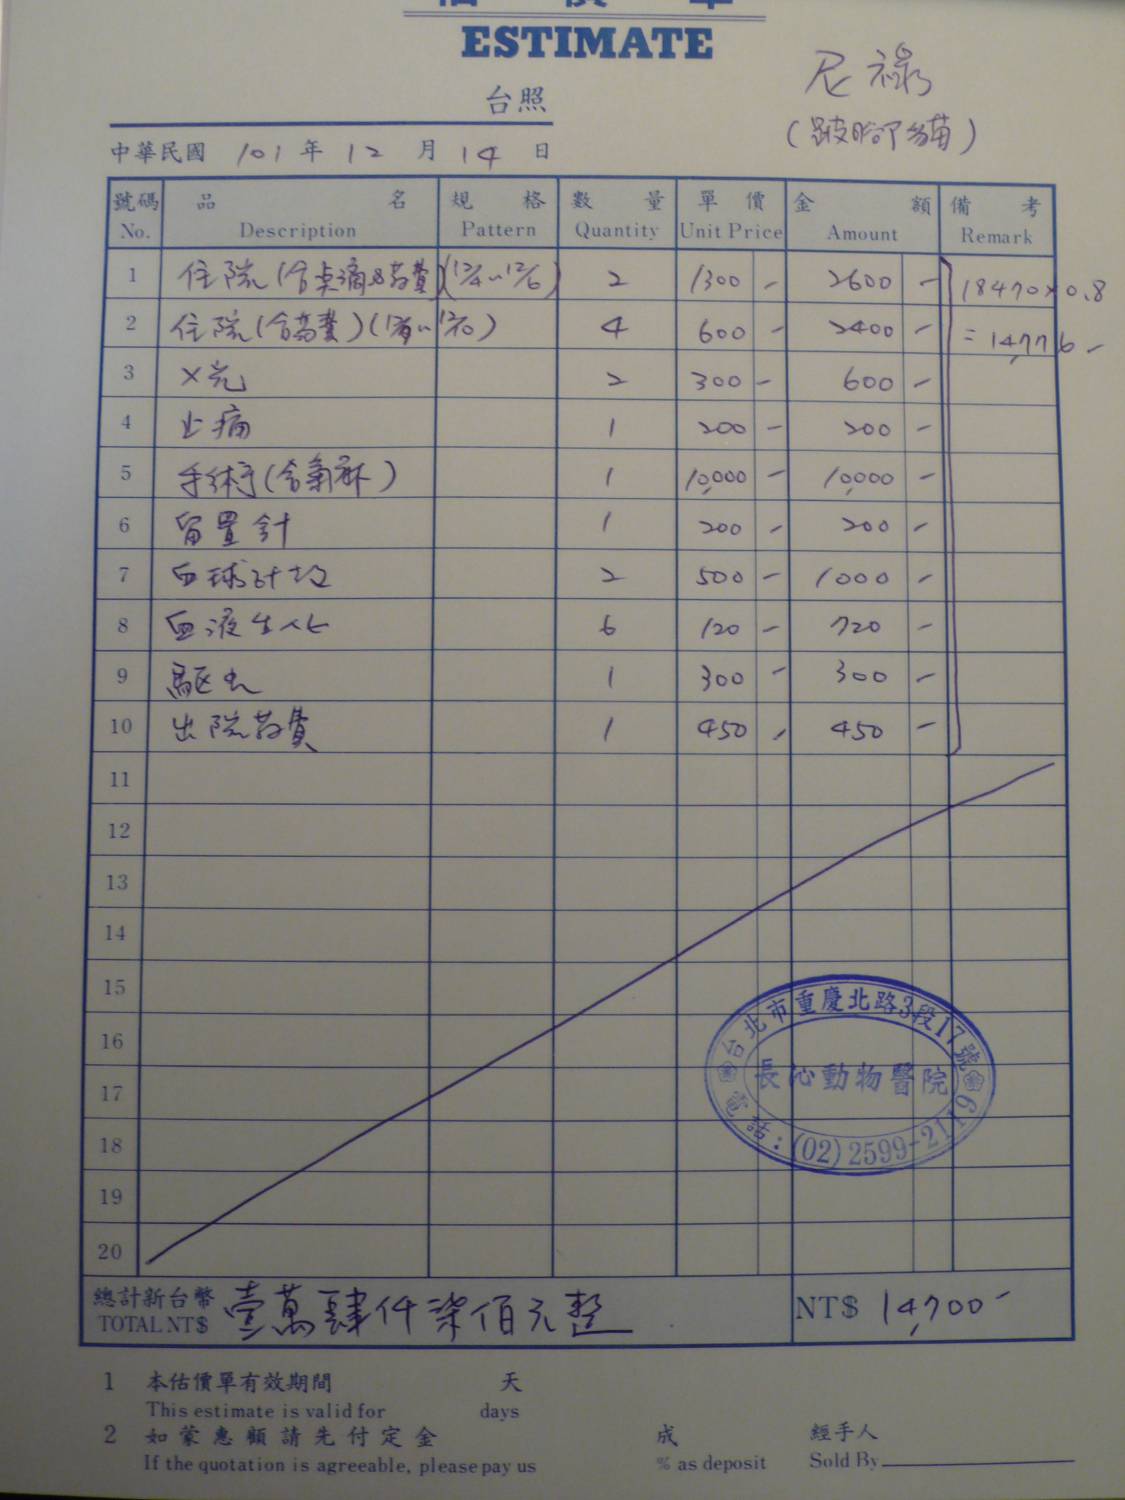 估價單
ESTIMATE
尼祿
(跛腳貓)
台照
中華民國 101 年 12 月 14 日
號碼 品名 規格 數量 單價 金額 備考
No. Description Pattern Quantity Unit Price Amount Remark
1 住院(含點滴&藥費)(12/4~12/6) 2 1300 - 2600 - 18470×0.8
2 住院(含藥費) 4 600 - 2400 - =14,776-
3 X光 2 300 - 600 -
4 止痛 1 200 - 200 -
5 手術(含氣麻) 1 10,000 - 10,000 -
6 留置針 1 200 - 200 -
7 血球計數 2 500 - 1000 -
8 血液生化 6 120 - 720 -
9 驅虫 1 300 - 300 -
10 出院藥費 1 450 - 450 -
11
12
13
14
15
16
17
18
19
20
台北市重慶北路3段17號
長沁動物醫院
電話:(02)2599-2119
總計新台幣 壹萬肆仟柒佰元整
TOTAL NT$ NT$ 14,700-
1 本估價單有效期間 天
This estimate is valid for days
2 如蒙惠顧請先付定金 成 經手人
If the quotation is agreeable, please pay us % as deposit Sold By